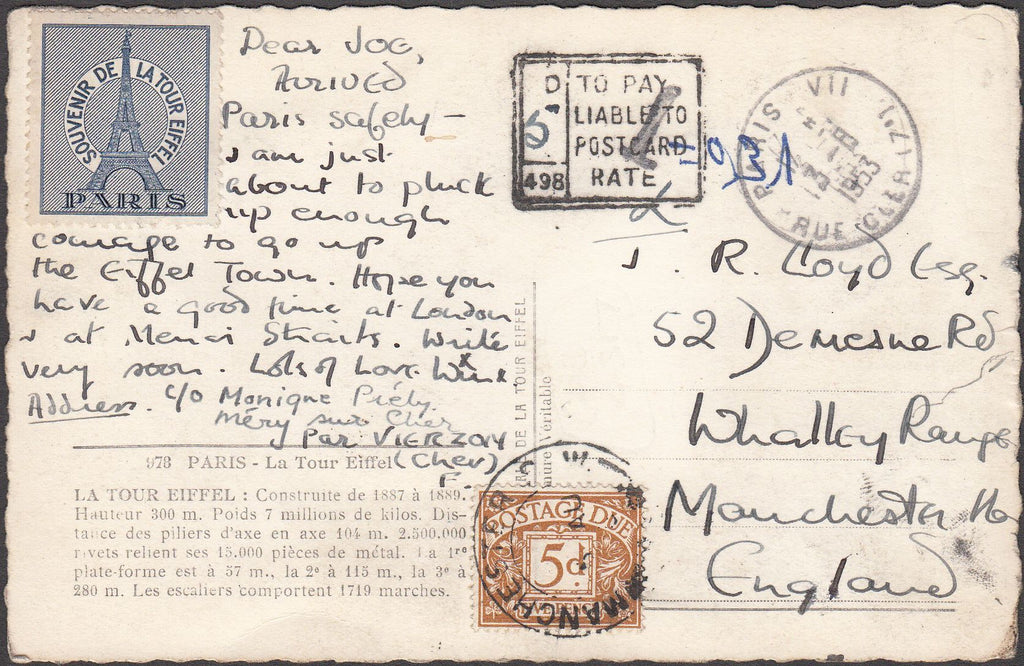 SOUVENIR DE LA TOUR EIFFEL
PARIS
Dear Joe,
Arrived
Paris safely –
I am just
about to pluck
up enough
courage to go up
the Eiffel Town. Hope you
have a good time at London
& at Menai Straits. Write
very soon. Lots of Love
Address. c/o Monique
Méry sur Cher
Par VIERZON
(Cher)
F.
978 PARIS - La Tour Eiffel
LA TOUR EIFFEL : Construite de 1887 à 1889.
Hauteur 300 m. Poids 7 millions de kilos. Dis-
tance des piliers d'axe en axe 104 m. 2.500.000
rivets relient ses 15.000 pièces de métal. La 1re
plate-forme est à 57 m., la 2e à 115 m., la 3e à
280 m. Les escaliers comportent 1719 marches.
DE LA TOUR EIFFEL
Véritable
D
5
498
TO PAY
LIABLE TO
POSTCARD
RATE
PARIS VII
RUE CLER (7e)
1953
J. R. Lloyd Esq.
52 Demesne Rd
Whalley Range
Manchester 16
England
MANCHESTER
POSTAGE DUE
5d